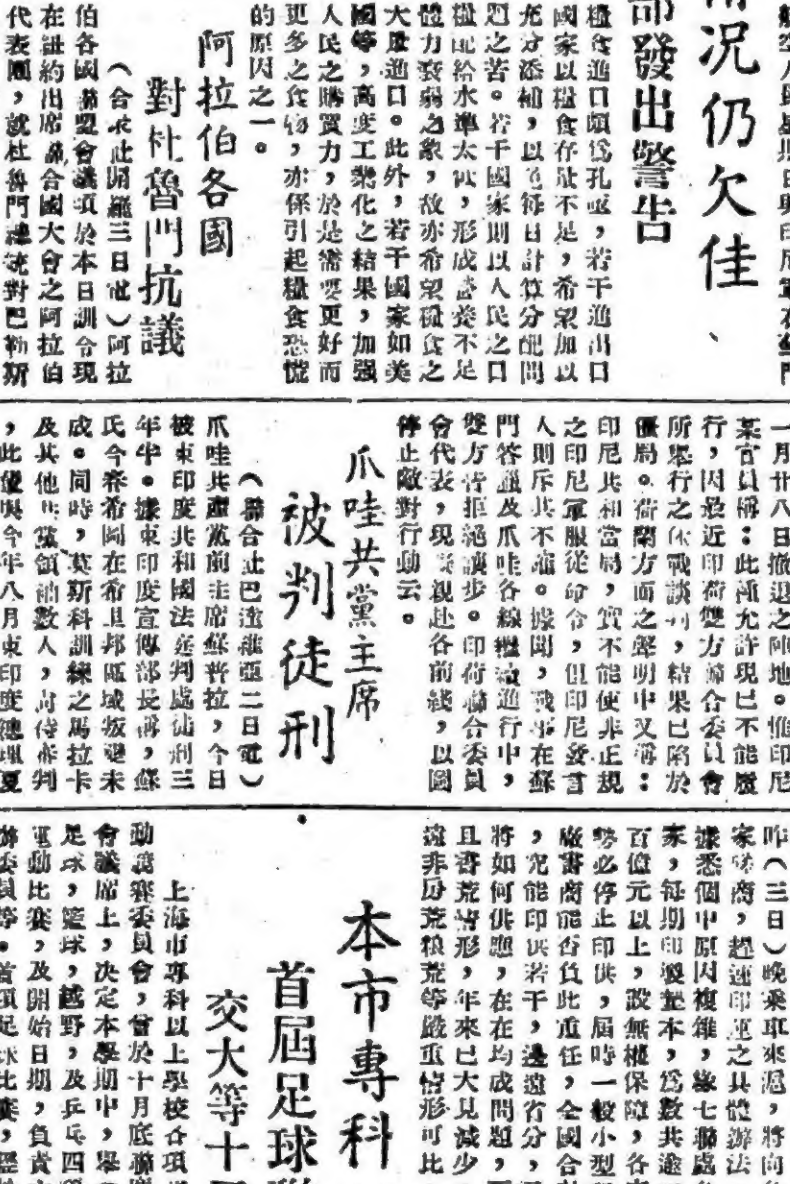 情况仍欠佳、
部發出警告
糧食進口頗爲孔亟，若干進出口
國家以糧食存量不足，希望加以
充分添補，以免每日計算分配問
題之苦。若干國家則以人民之口
糧配給水準太低，形成營養不足
體力衰弱之象，故亦希望糧食之
大量進口。此外，若干國家如美
國等，高度工業化之結果，加强
人民之購買力，於是需要更好而
更多之食物，亦係引起糧食恐慌
的原因之一。
阿拉伯各國
對杜魯門抗議
（合衆社開羅三日電）阿拉
伯各國聯盟會議項於本日訓令現
在紐約出席聯合國大會之阿拉伯
代表團，就杜魯門總統對巴勒斯
一月廿八日撤退之陣地。惟印尼
某官員稱：此種允許現已不能履
行，因最近印荷雙方聯合委員會
所舉行之休戰談判，結果已陷於
僵局。荷蘭方面之聲明中又稱：
印尼共和當局，實不能使非正規
之印尼軍服從命令，但印尼發言
人則斥其不確。據聞，戰事在蘇
門答臘及爪哇各線繼續進行中，
雙方皆拒絕讓步。印荷聯合委員
會代表，現
親赴各前綫，以圖
停止敵對行動云。
爪哇共黨主席
被判徒刑
（聯合社巴達維亞二日電）
爪哇共產黨前主席蘇普拉，今日
被東印度共和國法庭判處徒刑三
年半。據東印度宣傳部長稱，蘇
氏今春希圖在希里邦區域叛變未
成。同時，莫斯科訓練之馬拉卡
及其他共黨領袖數人，尚待審判
，此優與今年八月東印度總理夏
昨（三日）晚乘車來滬，將向
家
商，趕速印運之具體辦法
據悉個中原因複雜，緣七聯處
家，每期印製成本，爲數共逾
百億元以上，設無權保障，各
勢必停止印供，屆時一般小型
廠書商能否負此重任，全國合
，究能印供若干，邊遠省分，
將如何供應，在在均成問題，
且書荒情形，年來已大見減少
遠非房荒糧荒等嚴重情形可比
本市專科
首屆足球
交大等十
上海市專科以上學校各項
動競賽委員會，曾於十月底聯
會議席上，決定本學期中，舉
足球，籃球，越野，及乒乓四
運動比賽，及開始日期，負責
辦委員等。首項足球比賽，